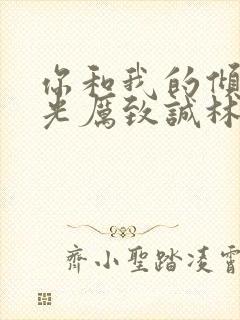 你和我的傾
光厲致誠林
齊小聖踏凌霄